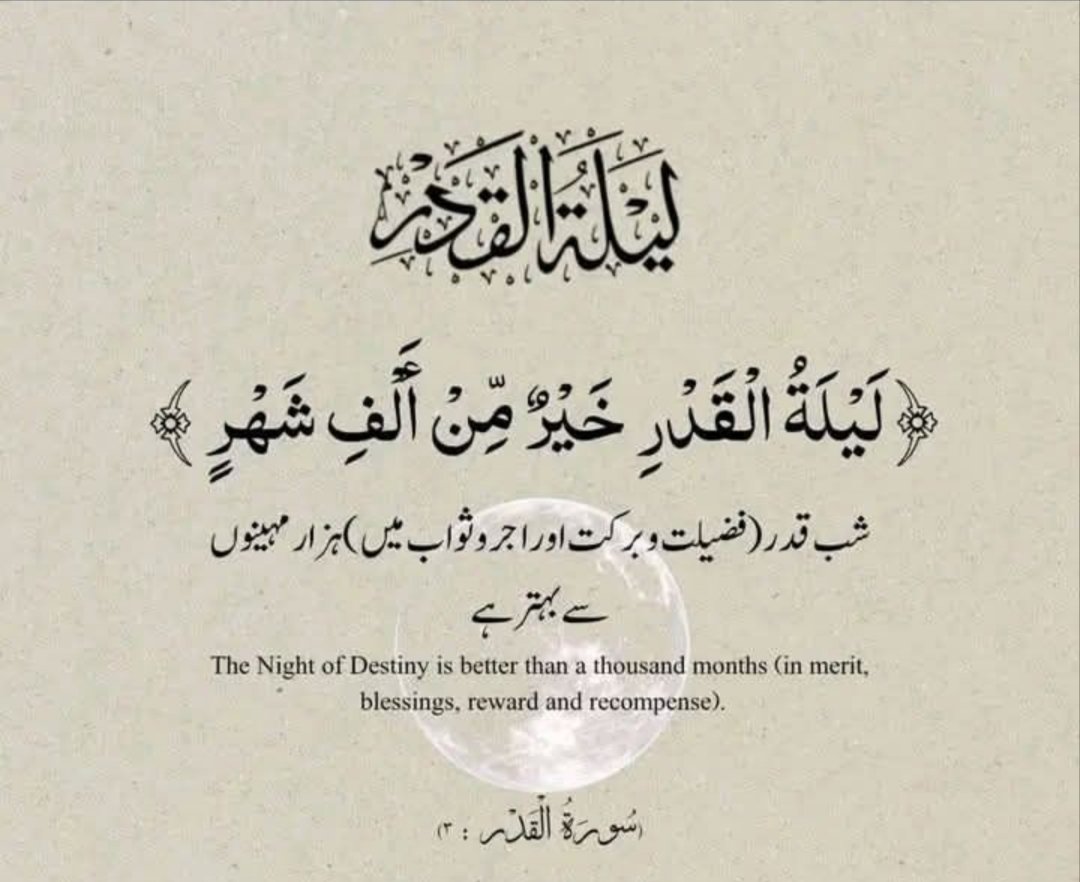 لَيْلَةُ الْقَدْرِ
﴿لَيْلَةُ الْقَدْرِ خَيْرٌ مِّنْ أَلْفِ شَهْرٍ﴾
شب قدر (فضیلت و برکت اور اجر و ثواب میں) ہزار مہینوں
سے بہتر ہے
The Night of Destiny is better than a thousand months (in merit,
blessings, reward and recompense).
(سُورَةُ الْقَدْر : ٣)